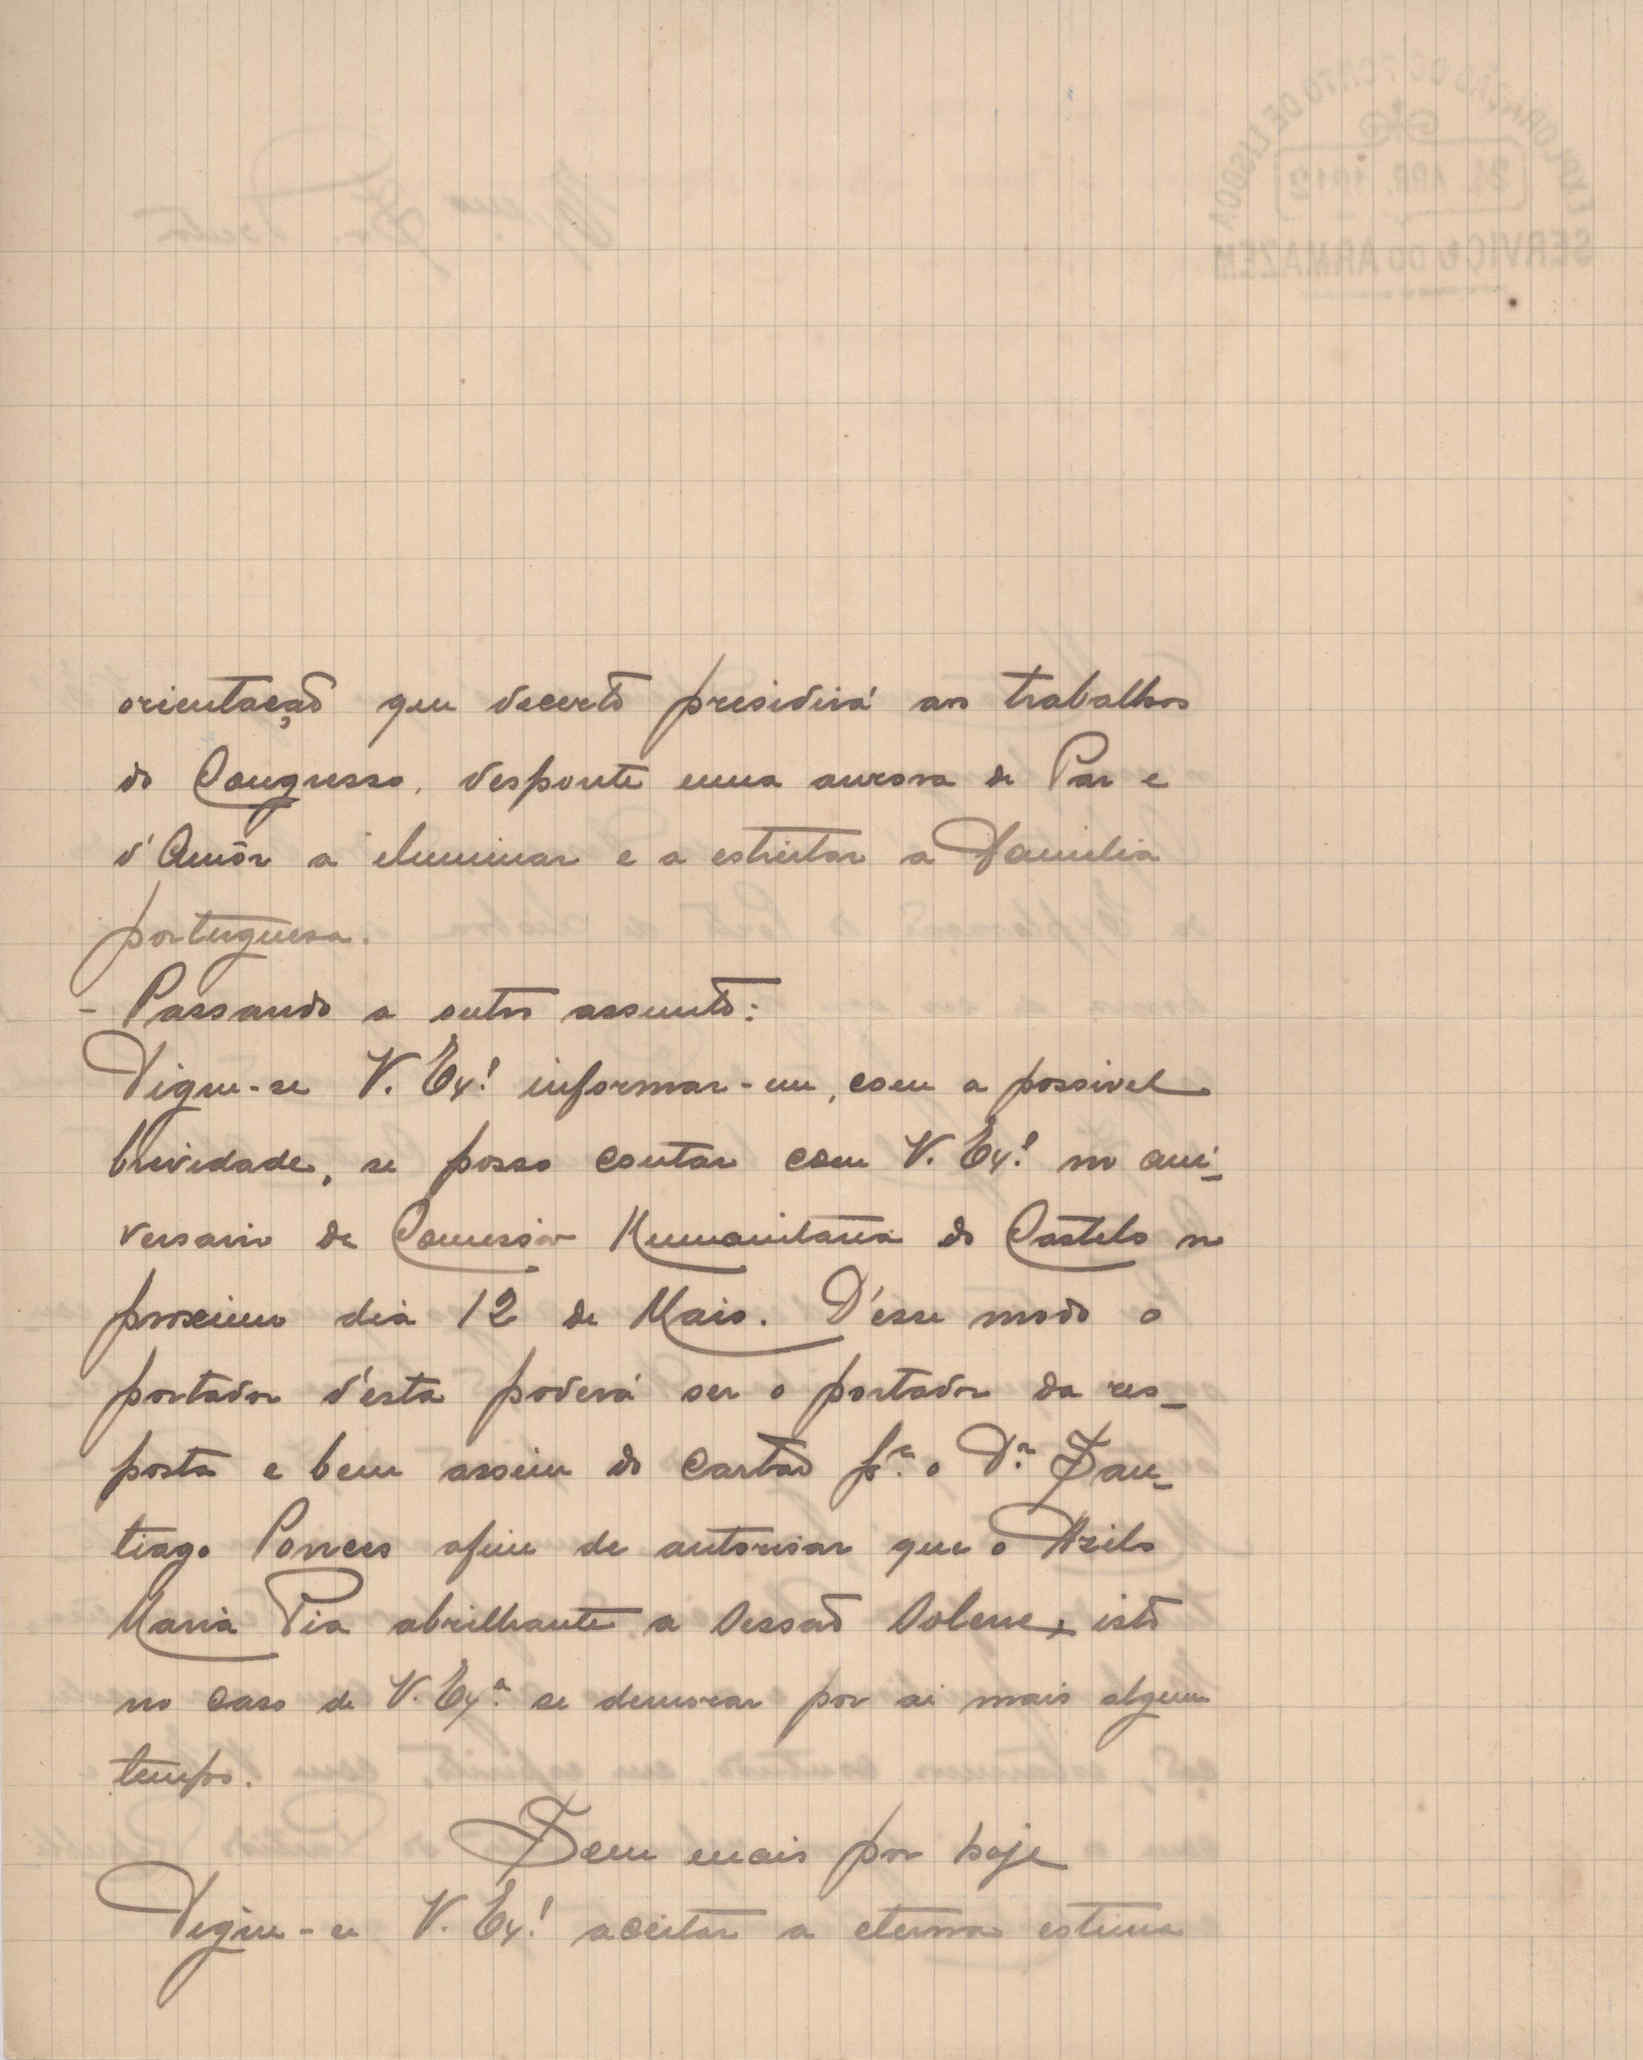 orientação que decerto presidirá aos trabalhos
do Congresso, desponte uma aurora de Paz e
d'Amôr a iluminar e a estreitar a Familia
portuguesa.
- Passando a outro assunto:
Digne-se V. Ex.ª informar-me, com a possivel
brevidade, se posso contar com V. Ex.ª no ani-
versario da Comissão Humanitaria do Castelo no
proximo dia 12 de Maio. D'esse modo o
portador d'esta poderá ser o portador da res-
posta e bem assim do cartão p.ª o D.r San-
tiago afim de autorisar que o Azilo
Maria Pia abrilhante a Sessão Solene, isto
no caso de V. Ex.ª se demorar por ai mais algum
tempo.
Sem mais por hoje
Digne-se V. Ex.ª aceitar a eterna estima